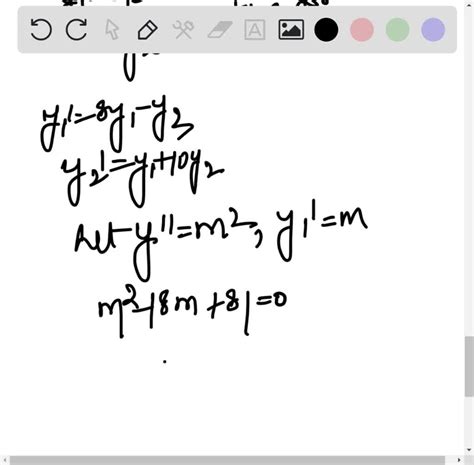 y₁'=8y₁-y₂,
y₂'=y₁+10y₂
let y''=m², y₁'=m
m²-18m+81=0